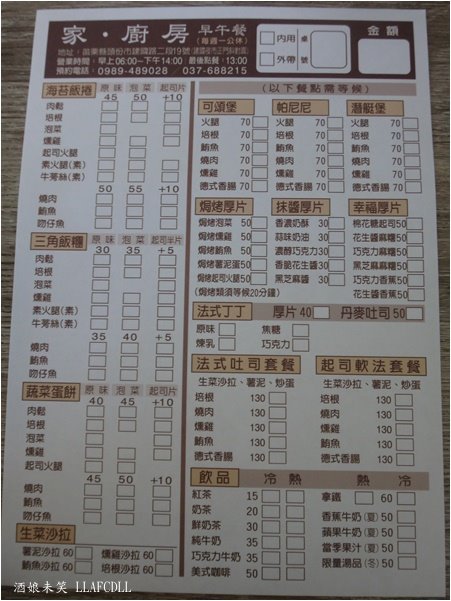 家·廚房 早午餐
(每週一公休)
地址:苗栗縣頭份市建國路二段19號(建國夜市正門斜對面)
營業時間:早上06:00~下午14:00 最後點餐:13:00
預約電話:0989-489028 / 037-688215
內用 桌號
外帶
金額
海苔飯捲 原味 泡菜 起司片
45 50 +10
肉鬆
培根
泡菜
燻雞
起司火腿
素火腿(素)
牛蒡絲(素)
50 55 +10
燒肉
鮪魚
吻仔魚
三角飯糰 原味 泡菜 起司半片
30 35 +5
肉鬆
培根
泡菜
燻雞
素火腿(素)
牛蒡絲(素)
35 40 +5
燒肉
鮪魚
吻仔魚
蔬菜蛋餅 原味 泡菜 起司片
40 45 +10
肉鬆
培根
泡菜
燻雞
起司火腿
45 50 +10
燒肉
鮪魚
吻仔魚
生菜沙拉
薯泥沙拉 60 燻雞沙拉 60
鮪魚沙拉 60 燒肉沙拉 60
(以下餐點需等候)
可頌堡
火腿 70
培根 70
鮪魚 70
燒肉 70
燻雞 70
德式香腸 70
帕尼尼
火腿 70
培根 70
鮪魚 70
燒肉 70
燻雞 70
德式香腸 70
潛艇堡
火腿 70
培根 70
鮪魚 70
燒肉 70
燻雞 70
德式香腸 70
焗烤厚片
焗烤泡菜 50
焗烤燻雞 50
焗烤鮪魚 50
焗烤薯泥蛋 50
(焗烤類須等候20分鐘)
抹醬厚片
香濃奶酥 30
蒜味奶油 30
濃醇巧克力 30
香脆花生醬 30
黑芝麻醬 30
幸福厚片
棉花糖起司 50
花生醬麻糬 50
巧克力麻糬 50
黑芝麻麻糬 50
花生醬香蕉 50
法式丁丁 厚片 40 丹麥吐司 50
原味 焦糖
煉乳 巧克力
法式吐司套餐
生菜沙拉、薯泥、炒蛋
培根 130
燒肉 130
燻雞 130
鮪魚 130
德式香腸 130
起司軟法套餐
生菜沙拉、薯泥、炒蛋
培根 130
燒肉 130
燻雞 130
鮪魚 130
德式香腸 130
飲品 冷 熱
紅茶 15
奶茶 20
鮮奶茶 30
純牛奶 35
巧克力牛奶 35
美式咖啡 50
熱 冷
拿鐵 60
香蕉牛奶(夏) 50
蘋果牛奶(夏) 50
當季果汁(夏) 50
限量湯品(冬) 50
酒娘未笑 LLAFCDLL